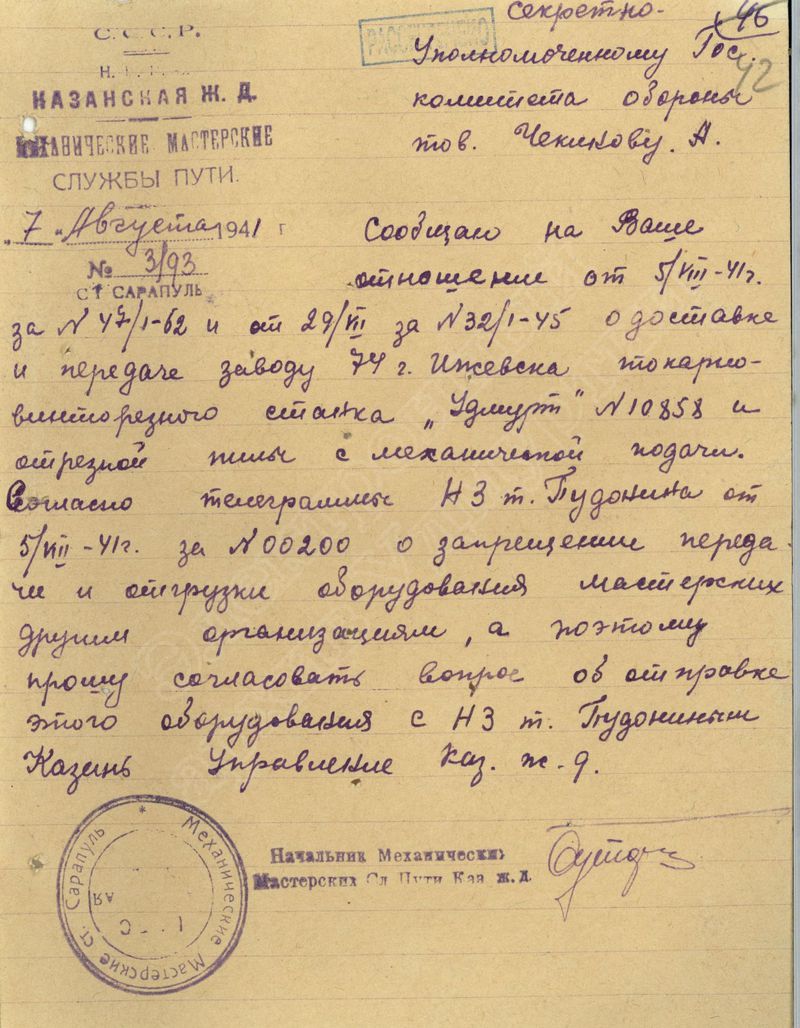 Секретно-
46
42
РАССЕКРЕЧЕНО
С.С.С.Р.
Н.К.
КАЗАНСКАЯ Ж. Д.
МЕХАНИЧЕСКИЕ МАСТЕРСКИЕ
СЛУЖБЫ ПУТИ.
"7" Августа 1941 г
№ 3/93
СТ САРАПУЛЬ
Уполномоченному Гос.
комитета обороны
тов. Чекинову. А.
Сообщаю на Ваше
отношение от 5/VIII-41г.
за N 47/1-62 и от 29/VII за N32/1-45 о доставке
и передаче заводу 74 г. Ижевска токарно-
винторезного станка „Удмурт" N10858 и
отрезной пилы с механической подачи.
Согласно телеграммы НЗ т. Пудонина от
5/VIII-41г. за N00200 о запрещении переда-
чи и отгрузки оборудования мастерских
другим организациям, а поэтому
прошу согласовать вопрос об отправке
этого оборудования с НЗ т. Пудониным
Казань Управление Каз. ж. д.
Начальник Механически
Мастерских Сл Пути Каз ж.д.
Механические Мастерские ст. Сарапуль